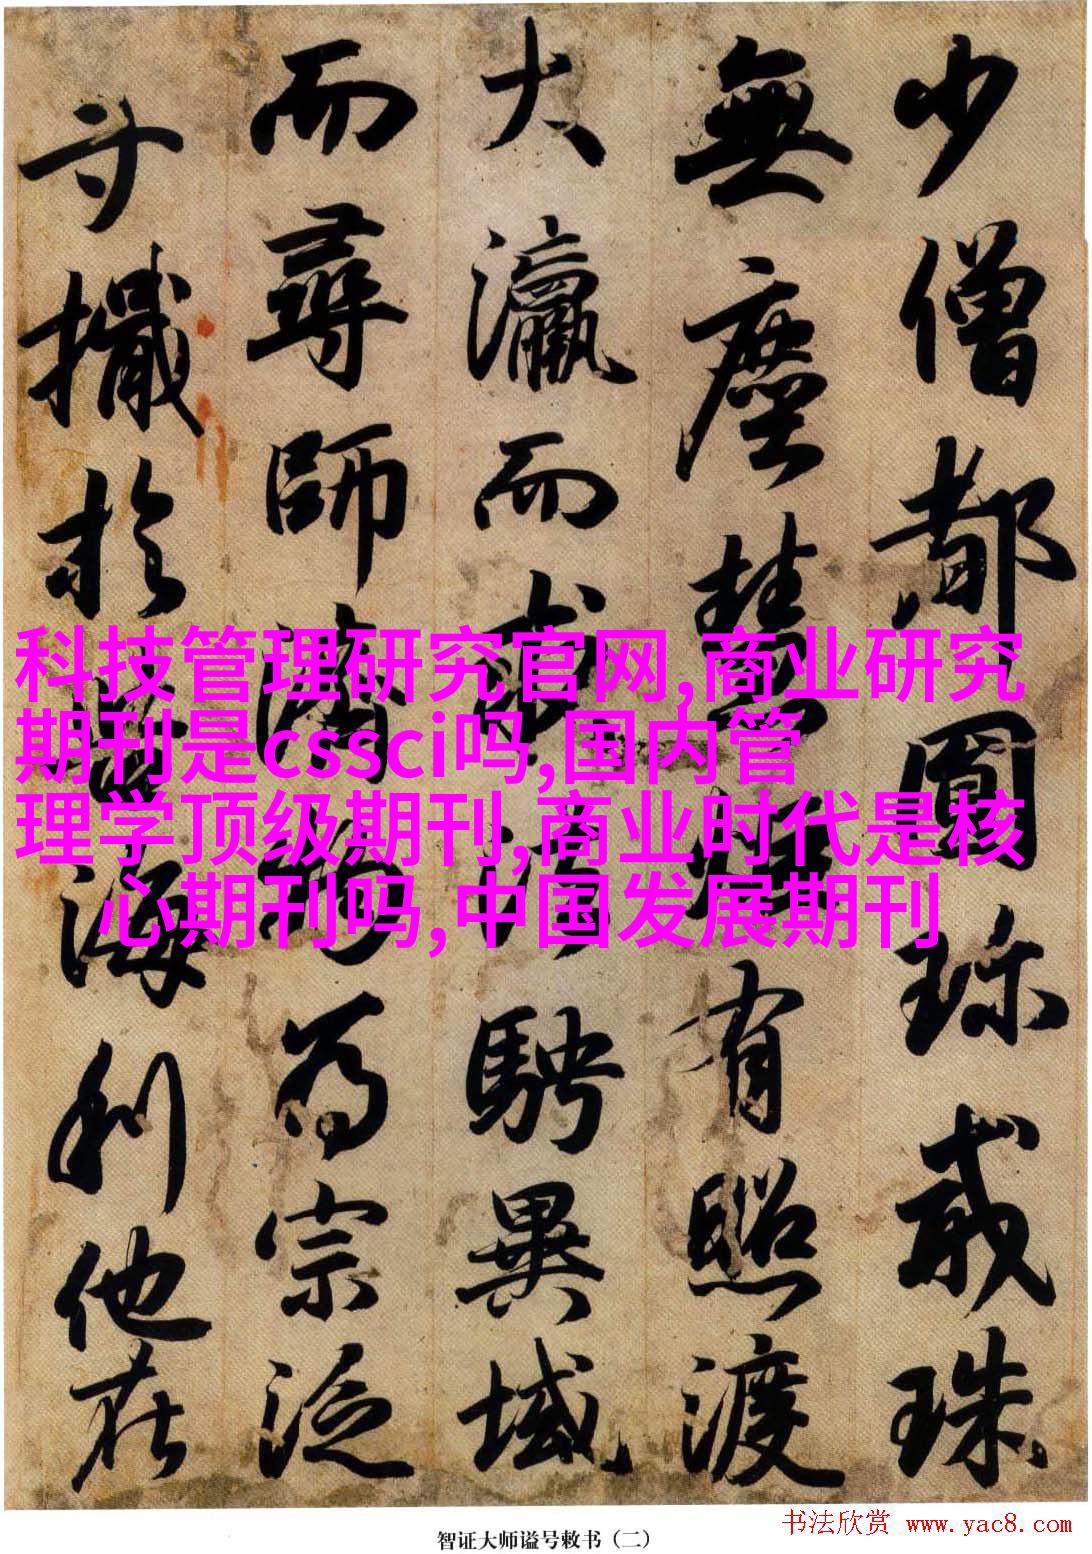 少僧都圓珎戒珠
無塵慧炬有照渡
大瀛而求法騁異域
而尋師濟物為宗泛
寸檝於海利他在
科技管理研究官网,商业研究
期刊是cssci吗,国内管
理学顶级期刊,商业时代是核
心期刊吗,中国发展期刊
智证大师谥号敕书（二）
书法欣赏 www.yac8.com